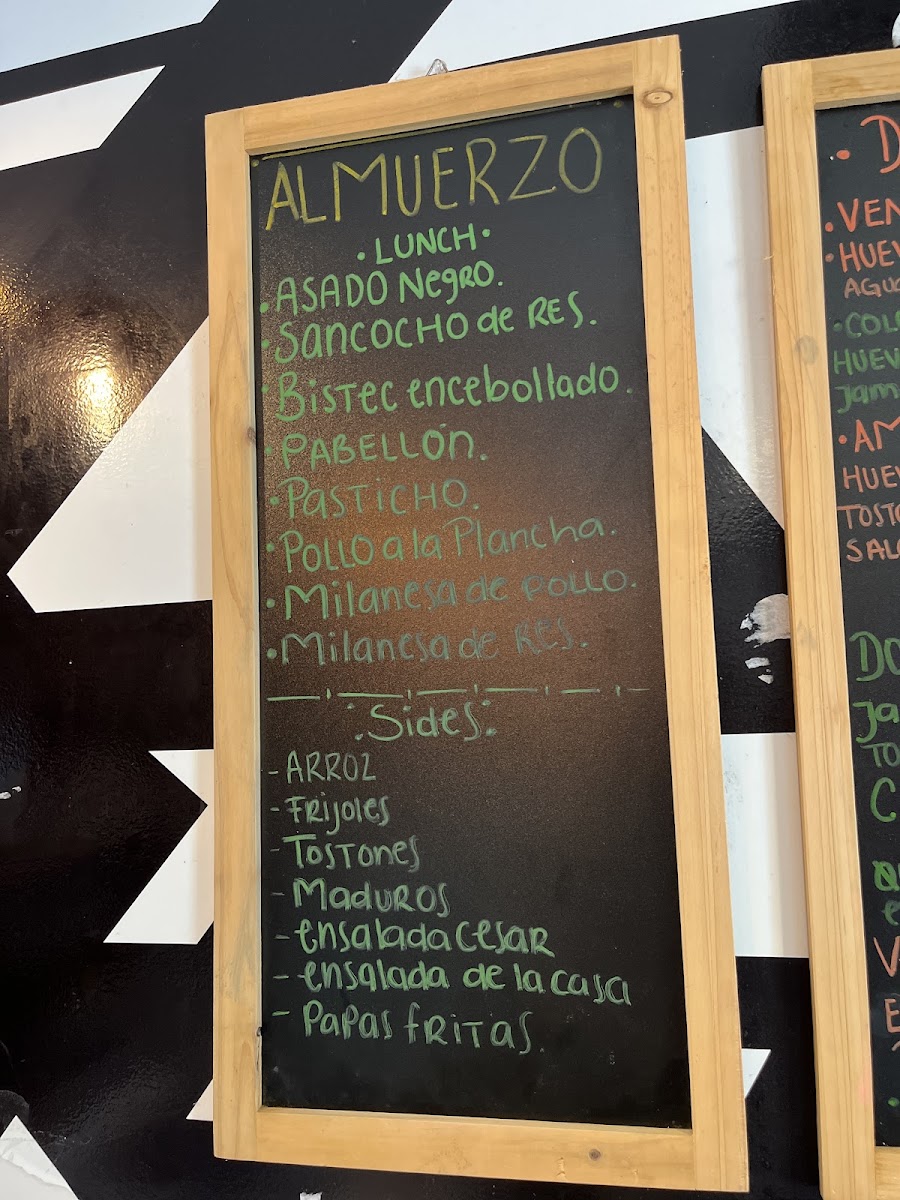 ALMUERZO
•LUNCH•
•ASADO Negro.
•SANCOCHO de RES.
•BISTEC encebollado.
•PABELLÓN.
•PASTICHO.
•POLLO a la Plancha.
•Milanesa de POLLO.
•Milanesa de RES.
:Sides:
-ARROZ
-Frijoles
-TOSTONES
-MADUROS
-ensalada CESAR
-ensalada de la casa
-PAPAS FRITAS.
•VEN
•HUEV
AGUA
•COL
HUEV
Jam
•AM
HUEV
TOSTO
SAL
DO
Ja
TO
C
V
E